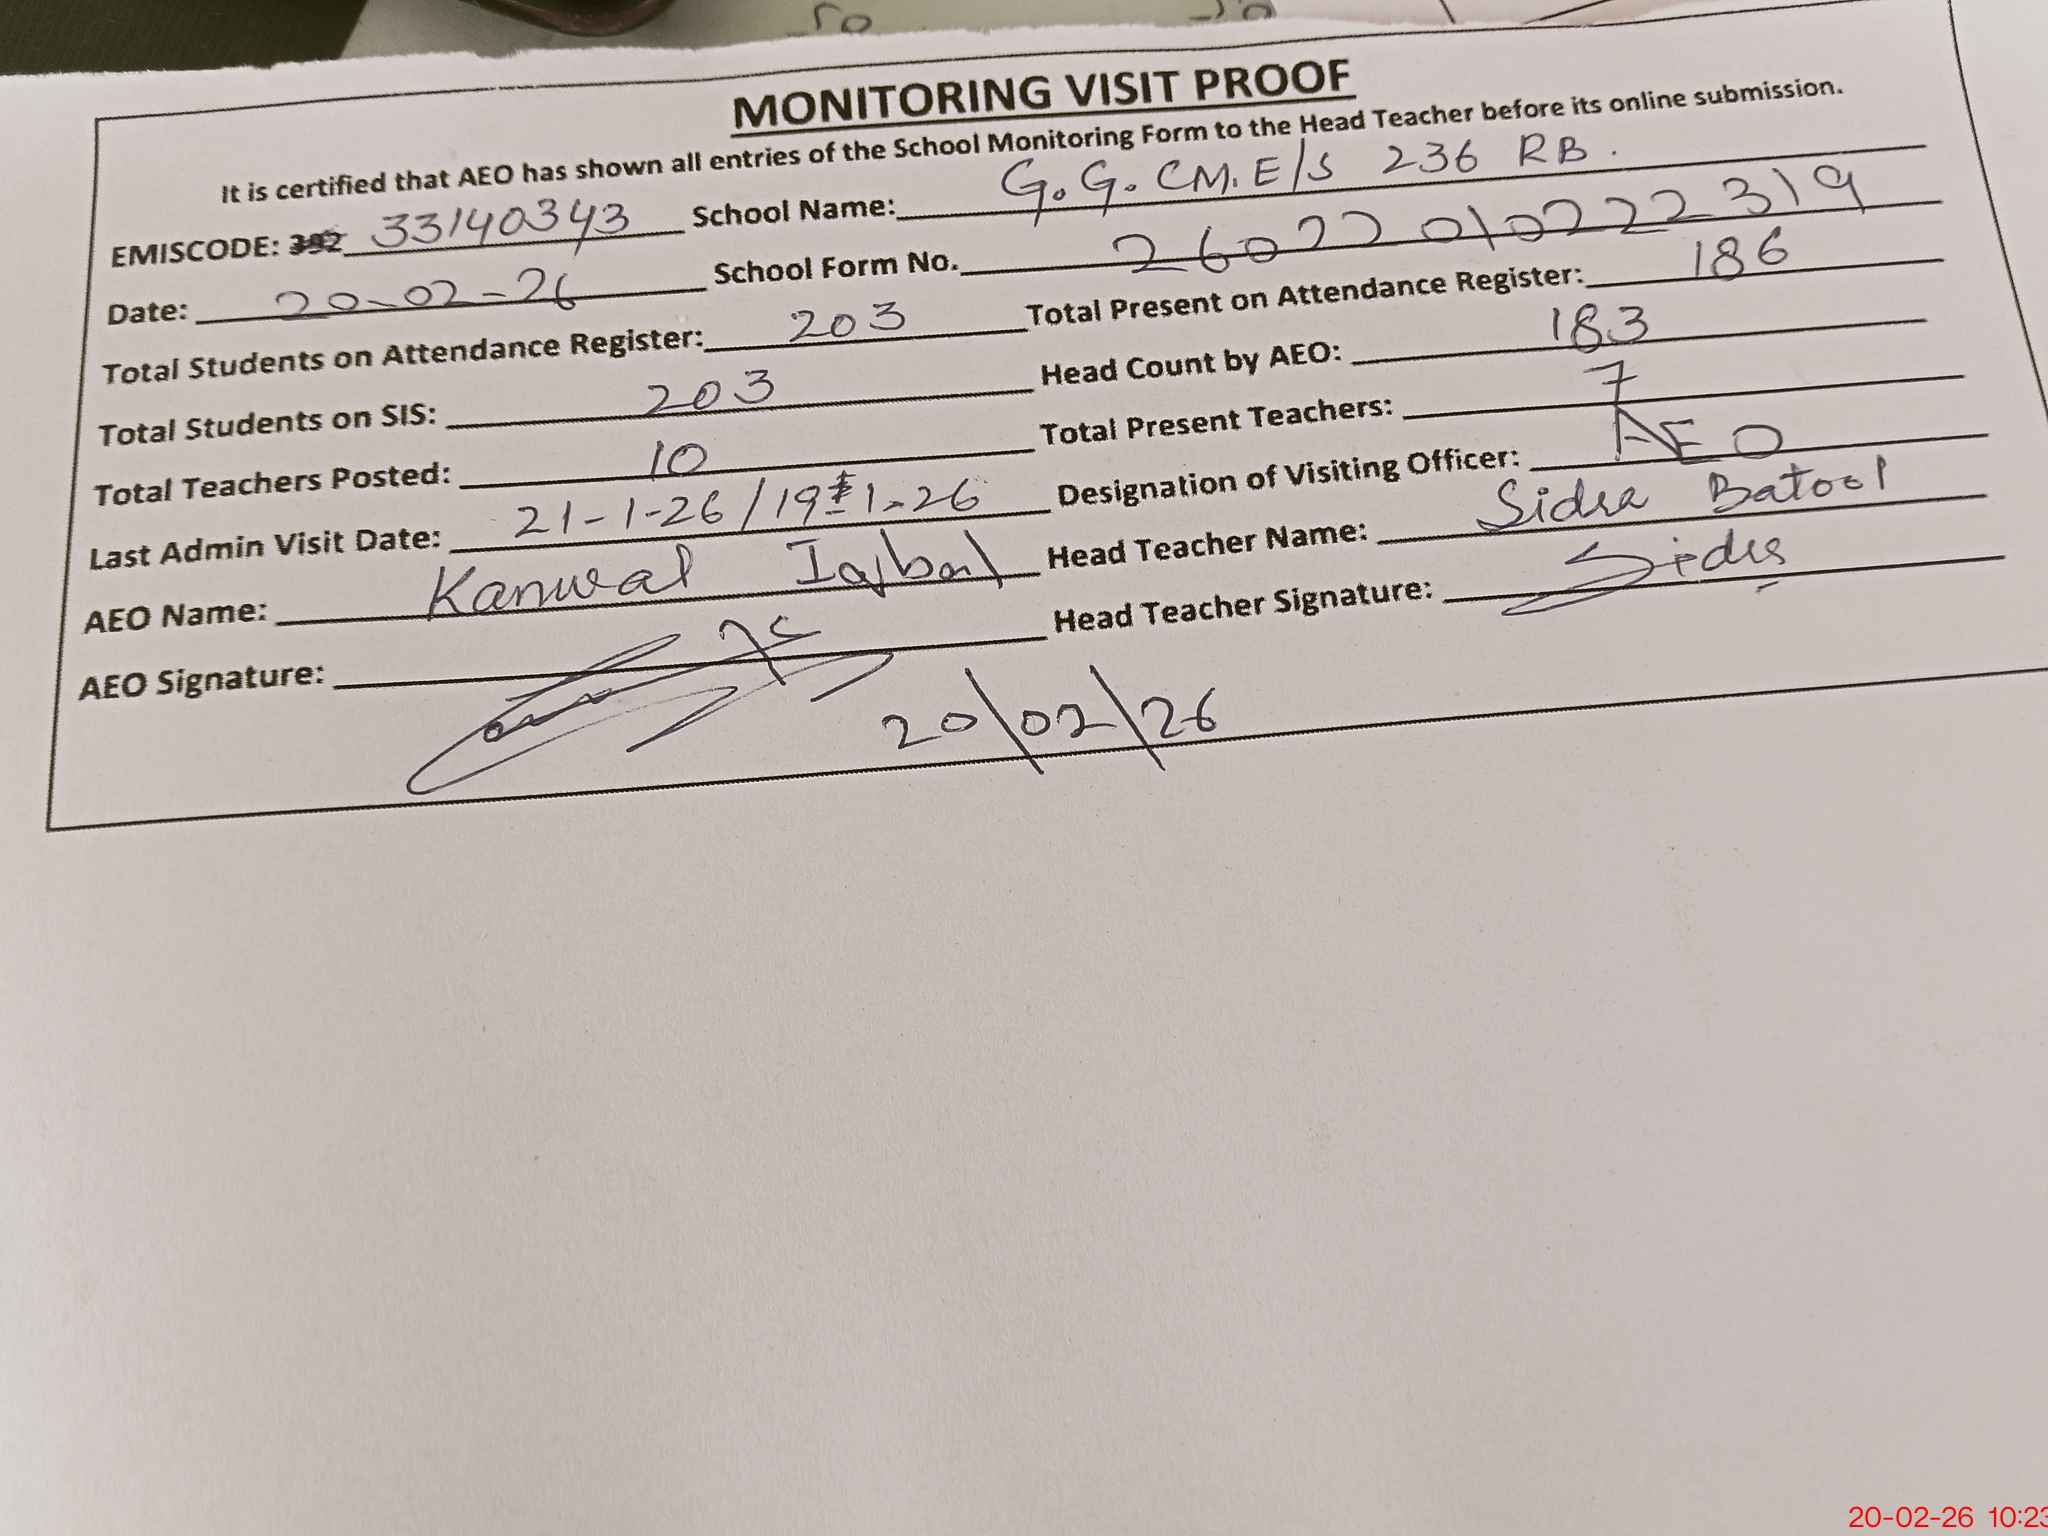 MONITORING VISIT PROOF
It is certified that AEO has shown all entries of the School Monitoring Form to the Head Teacher before its online submission.
EMISCODE: 33140343 School Name: G.G.CM.E/S 236 RB.
Date: 20-02-26 School Form No. 2602201022 2319
Total Students on Attendance Register: 203 Total Present on Attendance Register: 186
Total Students on SIS: 203 Head Count by AEO: 183
Total Teachers Posted: 10 Total Present Teachers: 7
Last Admin Visit Date: 21-1-26/19-1-26 Designation of Visiting Officer: AEO
AEO Name: Kanwal Iqbal Head Teacher Name: Sidra Batool
AEO Signature: Head Teacher Signature: Sidra
20/02/26
20-02-26 10:23